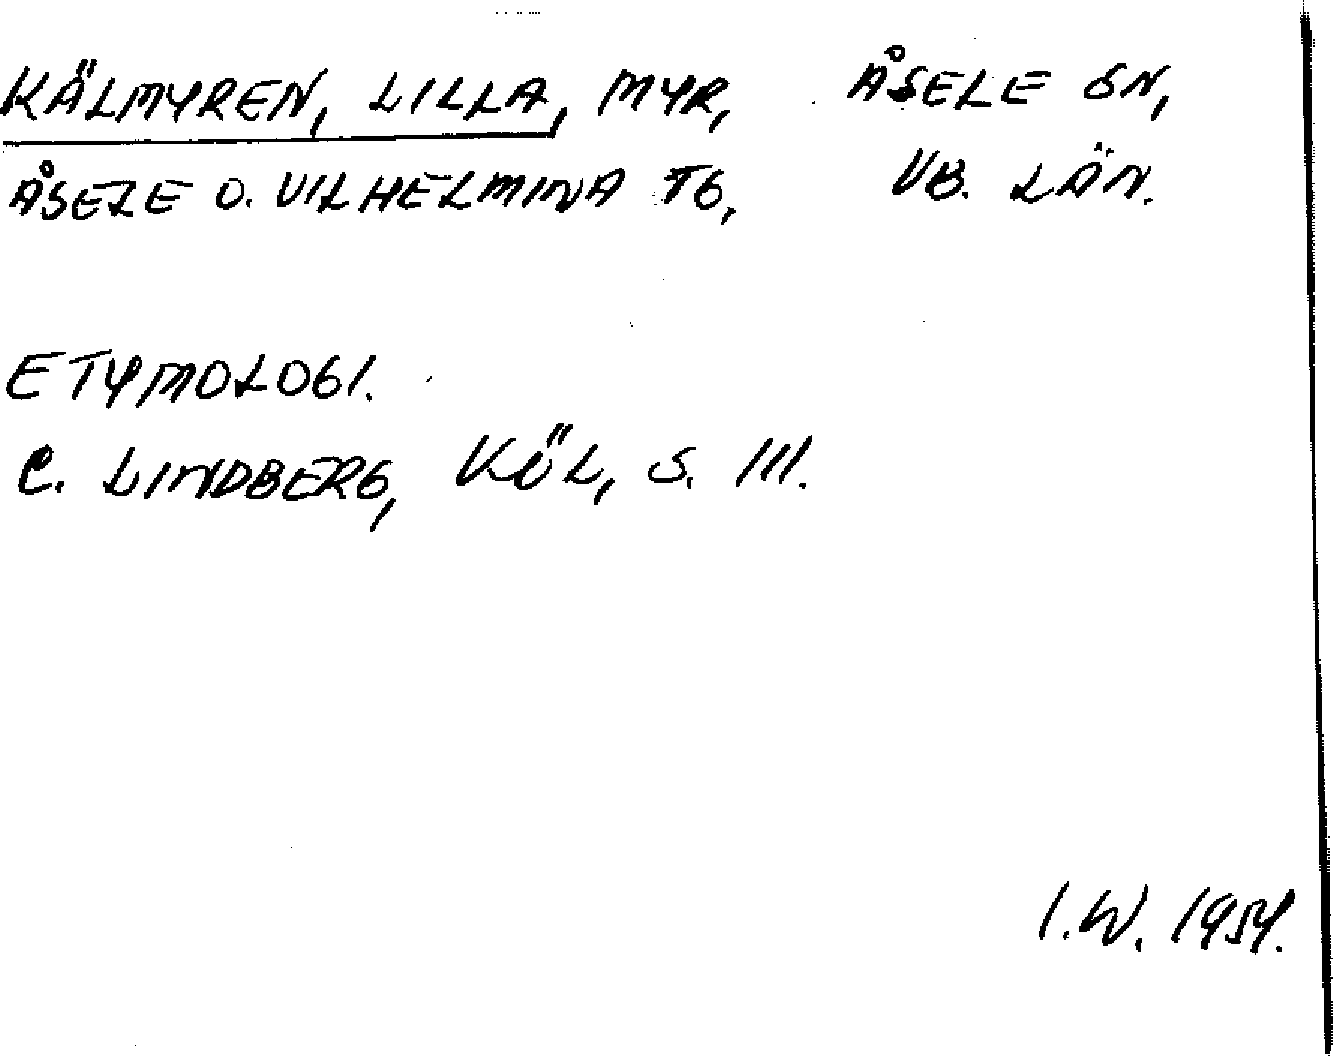 KÄLMYREN, LILLA, MYR, ÅSELE SN,
ÅSELE O. VILHELMINA TG, VB. LÄN.
ETYMOLOGI.
C. LINDBERG, KÖL, S. 111.
I.W. 1954.